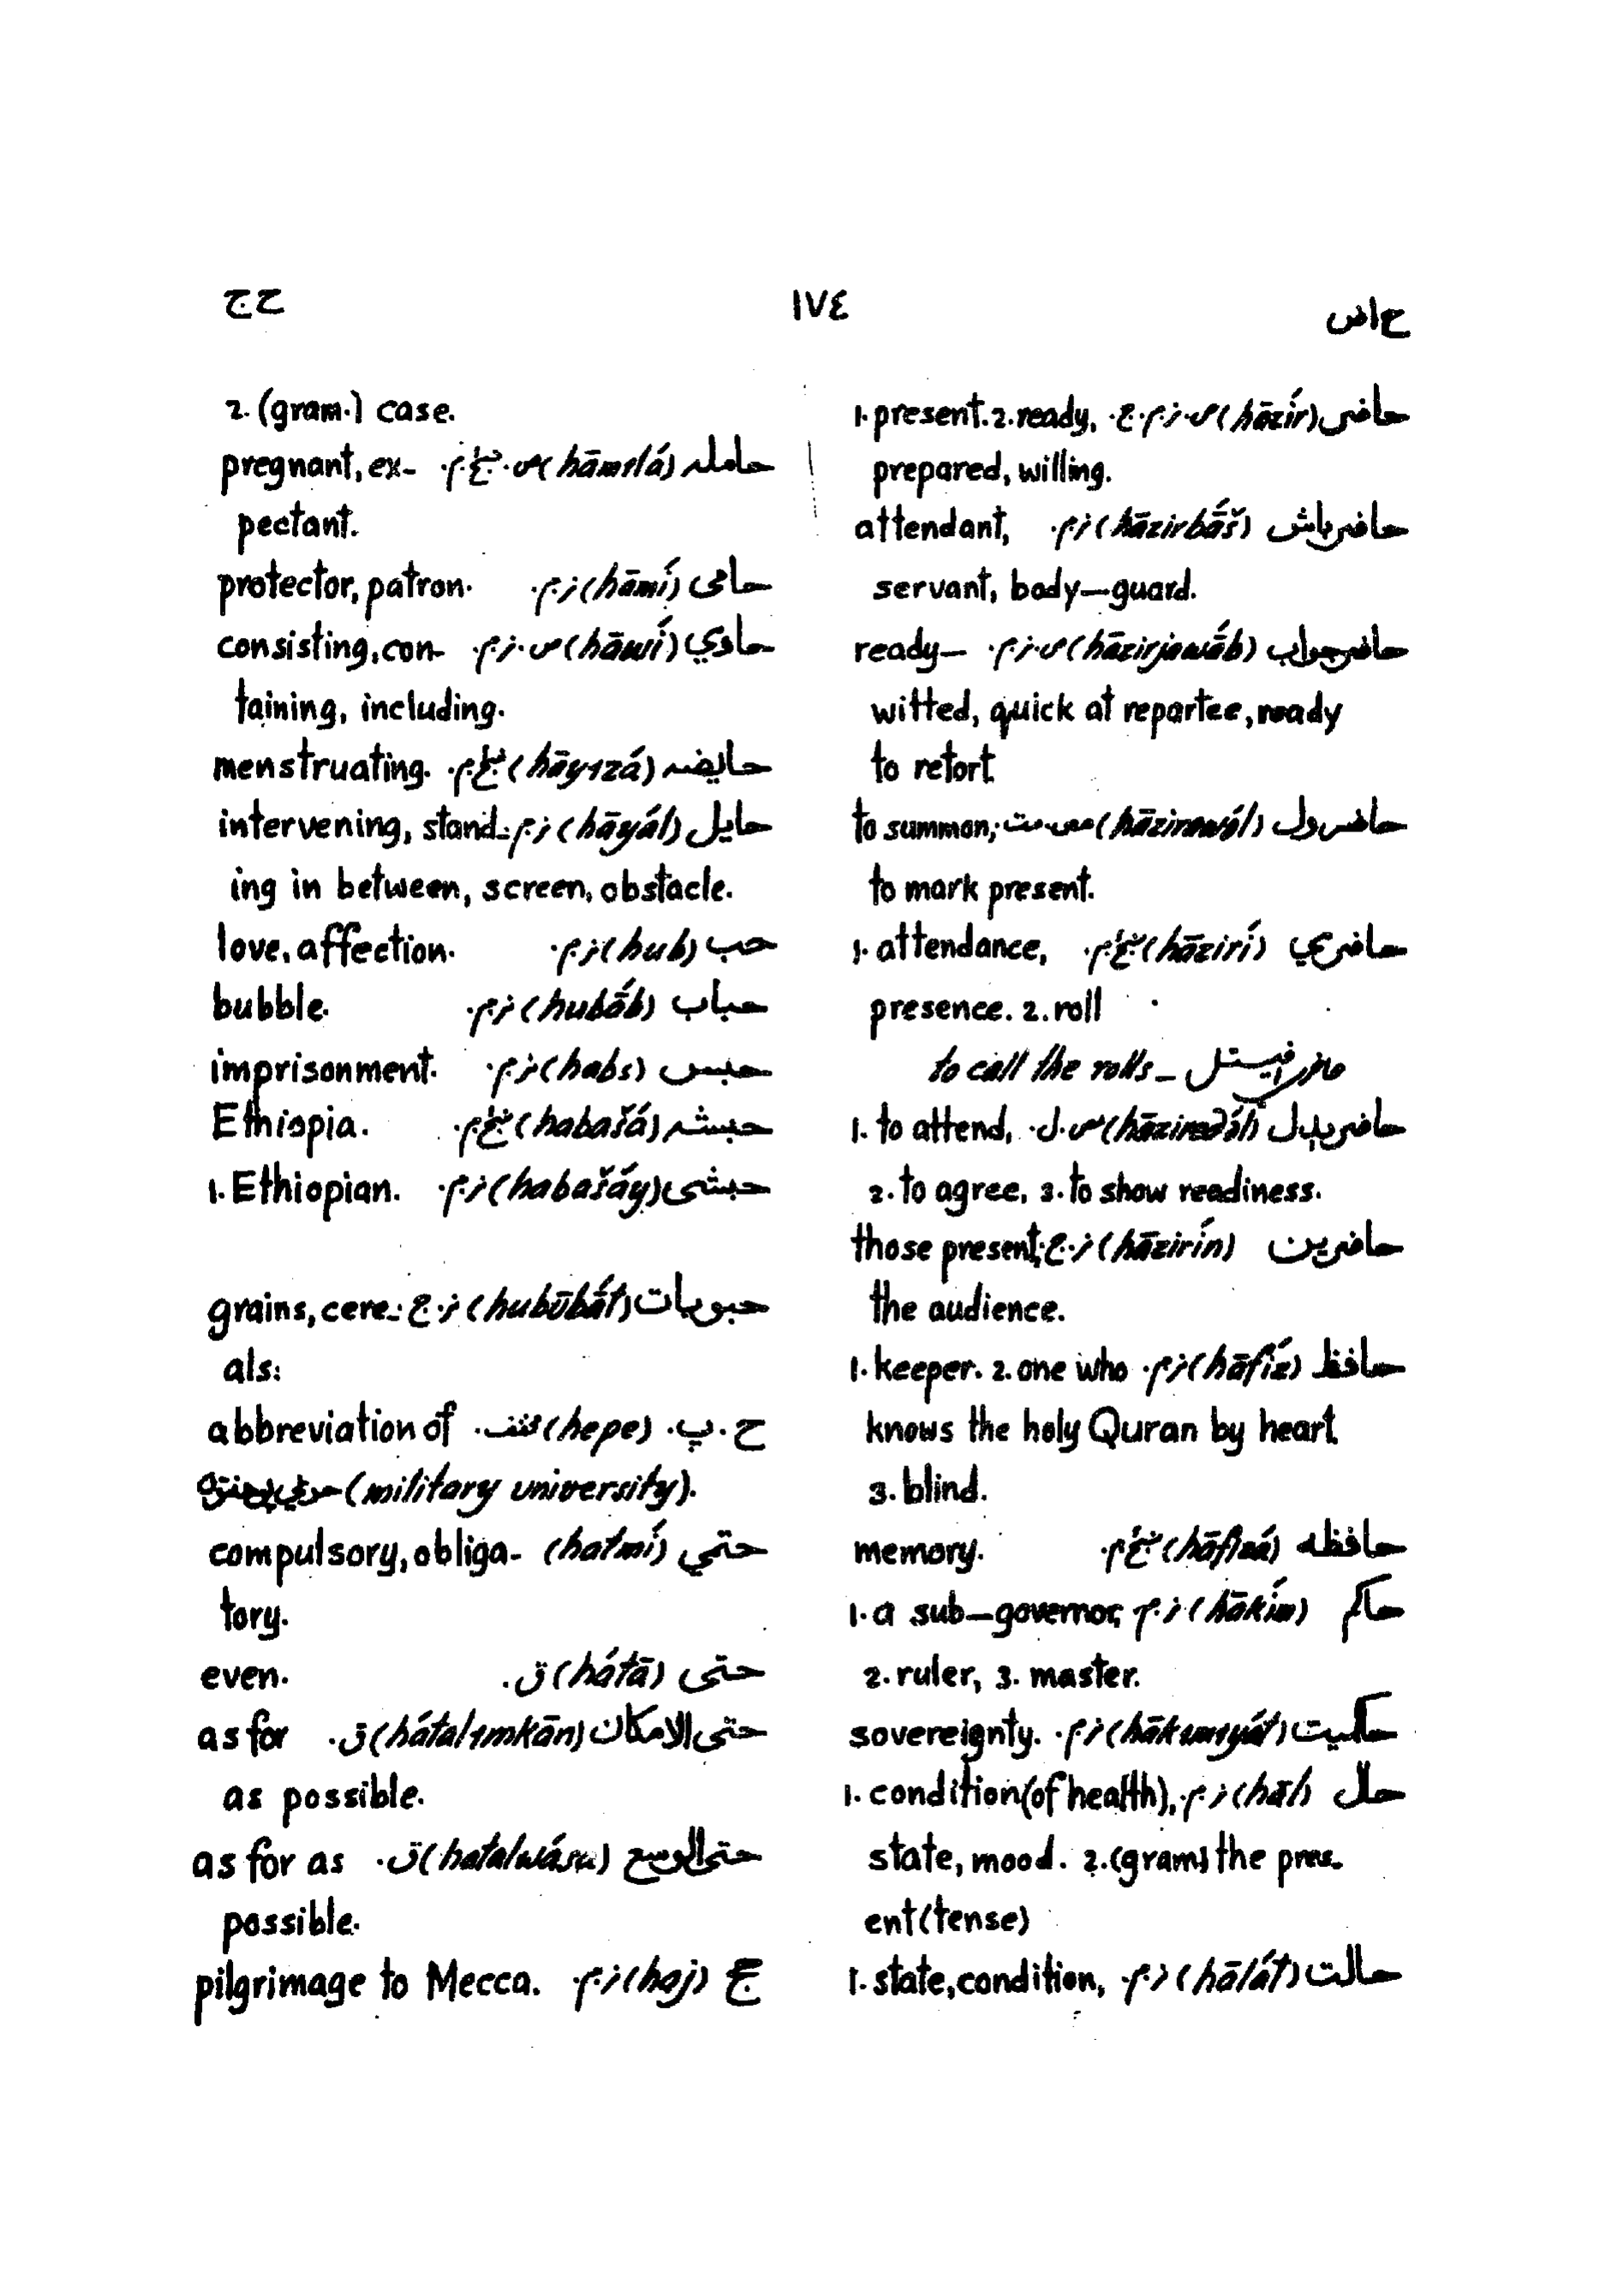 حاض ١٧٤ حج
حاضر (hāzír) ص. ز.م. ج. 1. present. 2. ready,
prepared, willing.
حاضرباش (hāzirbā́š) ز.م. attendant,
servant, body—guard.
حاضرجواب (hāzirjawā́b) ص. ز.م. ready—
witted, quick at repartee, ready
to retort
حاضرول (hāzirawə́l) to summon,
to mark present.
حاضري (hāzirí) 1. attendance,
presence. 2. roll
to call the rolls —
حاضریدل (hāziredə́l) ص. ل. 1. to attend,
2. to agree, 3. to show readiness.
حاضرین (hāzirín) ز. ج. those present,
the audience.
حافظ (hāfíz) ز.م. 1. keeper. 2. one who
knows the holy Quran by heart
3. blind.
حافظه (hāfizá) memory.
حاکم (hākím) ز.م. 1. a sub—governor,
2. ruler, 3. master.
(hākımıyát) ز.م. sovereignty.
حال (hāl) ز.م. 1. condition (of health),
state, mood. 2. (gram) the pres-
ent (tense)
حالت (hālát) ز.م. 1. state, condition,
2. (gram.) case.
حامله (hāmılá) pregnant, ex-
pectant.
حامی (hāmí) ز.م. protector, patron.
حاوي (hāwí) ص. ز.م. consisting, con-
taining, including.
حایضه (hāyızá) menstruating.
حایل (hāyál) ز.م. intervening, stand-
ing in between, screen, obstacle.
حب (hub) ز.م. love, affection.
حباب (hubā́b) ز.م. bubble.
حبس (habs) ز.م. imprisonment.
حبشه (habašá) Ethiopia.
حبشی (habašáy) ز.م. 1. Ethiopian.
حبوبات (hubūbā́t) ز. ج. grains, cere-
als:
ح. پ. (hepe) abbreviation of
حربي پوهنتون (military university).
حتمي (hatmí) compulsory, obliga-
tory.
حتی (hátā) ق. even.
حتی الامکان (hátalımkān) ق. as for
as possible.
حتی الوسع (hatalwásu) ق. as for as
possible.
حج (haj) ز.م. pilgrimage to Mecca.